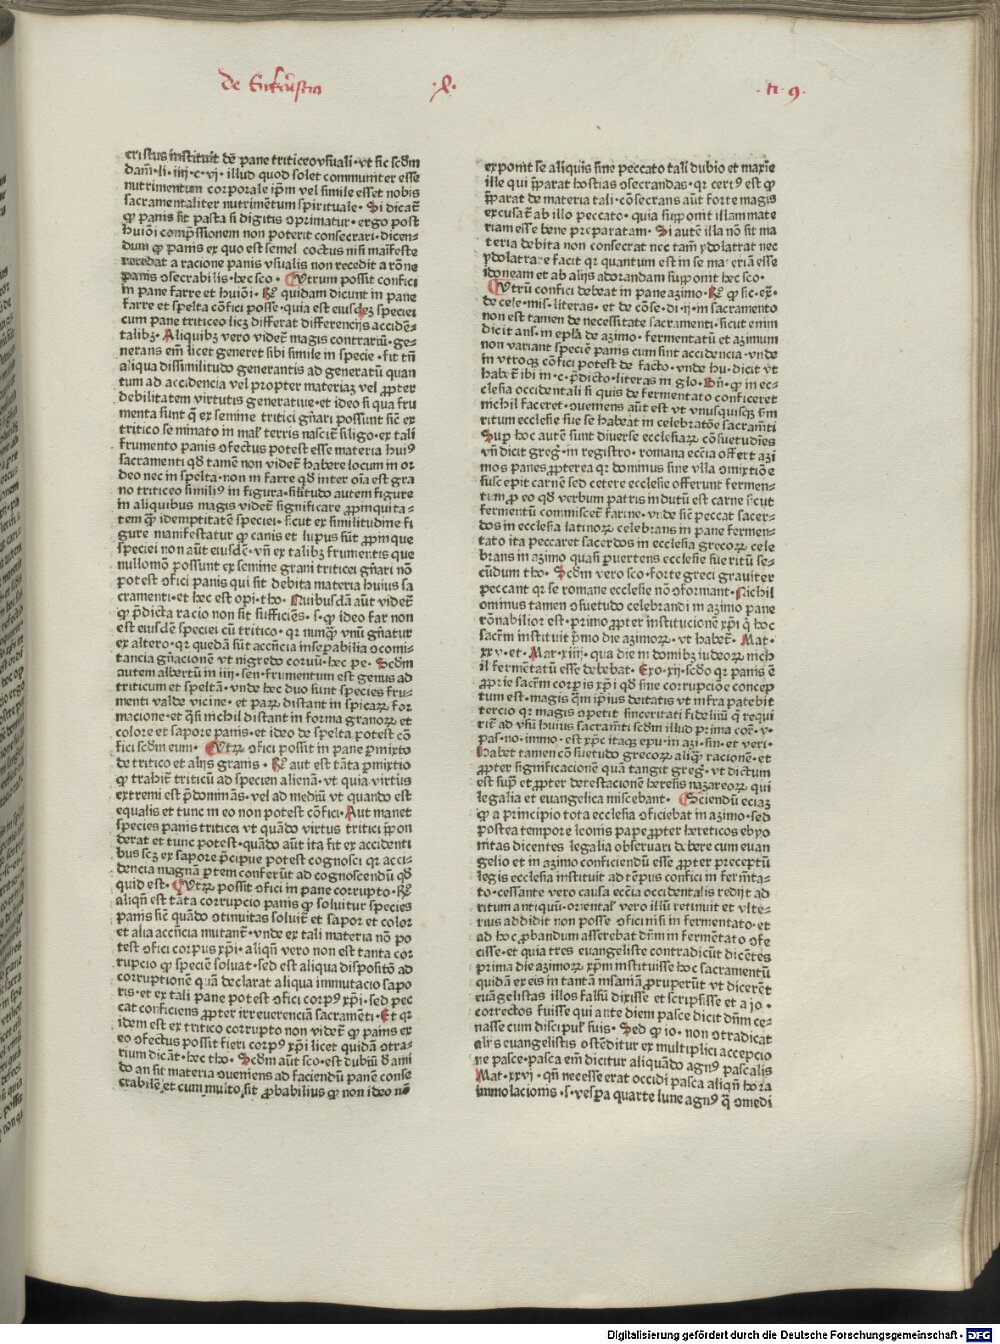 de Eukaristia .X. .ti. 9.
cristus instituit de pane triticeo vsuali. vt sic scdm
dam. li. iiij. c. vj. illud quod solet communiter esse
nutrimentum corporale ipm vel simile esset nobis
sacramentaliter nutrimētum spirituale. Si dicat̄
ꝙ panis sit pasta si digitis ↄprimatur. ergo post
huiōi comp̄ssionem non poterit consecrari. dicen-
dum ꝙ panis ex quo est semel coctus nisi māifeste
recedat a racione panis vsualis non recedit a rōne
panis ↄsecrabilis. hec sco. Vtrum possit confici
in pane farre et huiōi. Rō quidam dicunt in pane
farre et spelta cōfici posse. quia est eiusdeꝫ speciei
cum pane triticeo licꝫ differat differencijs acciden-
talibꝫ. Aliquibꝫ vero videt̄ magis contrariū. ge-
nerans em̄ licet generet sibi simile in specie. fit tn̄
aliqua dissimilitudo generantis ad generatū quan
tum ad accidencia vel propter materiaꝫ vel ꝓpter
debilitatem virtutis generatiue. et ideo si qua fru
menta sunt q̄ ex semine tritici gn̄ari possunt sic̄ ex
tritico seminato in mal' terris nascit̄ siligo. ex tali
frumento panis ↄfectus potest esse materia hui9
sacramenti qd̄ tamē non videt̄ habere locum in or
deo nec in spelta. non in farre qd̄ inter oīa est gra
no triticeo similis in figura. silitudo autem figure
in aliquibus magis videt̄ significare ꝓpinquita-
tem q̄ꝫ idemptitatē speciei. sicut ex similitudine fi
gure manifestatur ꝙ canis et lupus sūt ꝓpinque
speciei non aūt eiusdē. vn̄ ex talibꝫ frumentis que
nullomō possunt ex semine grani tritici gn̄ari nō
potest ↄfici panis qui sit debita materia huius sa
cramenti. et hec est opi. tho. Quibusdā aūt videt̄
ꝙ p̄dicta racio non sit sufficiēs. s. ꝙ ideo far non
est eiusdē speciei cū tritico. qr nunqꝫ vnū gn̄atur
ex altero. qr quedā sūt accn̄cia insep̄abilia ↄcomi-
tancia gn̄acionē vt nigredo coruū. hec pe. Scdm
autem albertū in iiij. sen. frumentum est genus ad
triticum et speltā. vnde hec duo sunt species fru-
menti valde vicine. et paꝝ distant in spicaꝝ for
macione. et q̄si nichil distant in forma granoꝝ et
colore et sapore panis. et ideo de spelta potest cō
fici scdm eum. Vtꝝ ↄfici possit in pane p̄mixto
de tritico et alijs granis. Rō aut est tāta p̄mixtio
ꝙ trahit̄ triticū ad speciem alienā. vt quia virtus
extremi est p̄domināns. vel ad mediū vt quando est
equalis et tunc in eo non potest cōfici. Aut manet
species panis triticei vt quādo virtus tritici ip̄on
derat et tunc potest. quādo aūt ita fit ex accidenti
bus scꝫ ex sapore p̄cipue potest cognosci qr acci-
dencia magnā ꝑtem conferūt ad cognoscendū qd̄
quid est. Vtꝝ possit ↄfici in pane corrupto. Rō
aliqn̄ est tāta corrupcio panis ꝙ soluitur species
panis sic̄ quādo ↄtinuitas soluit̄ et sapor et color
et alia accn̄cia mutant̄. vnde ex tali materia nō po
test ↄfici corpus xp̄i. aliqn̄ vero non est tanta cor
rupcio ꝙ speciē soluat. sed est aliqua disposito ad
corruptionē quā declarat aliqua immutacio sapo
ris. et ex tali pane potest ↄfici corp9 xp̄i. sed pec
cat conficiens ꝓpter irreuerenciā sacramēti. Et qr
idem est ex tritico corrupto non videt̄ ꝙ panis ex
eo ↄfectus possit fieri corp9 xp̄i licet quidā ↄtra-
rium dicāt. hec tho. Scdm aūt sco. est dubiū de ami
do an sit materia ↄueniens ad faciendū panē conse
crabilē. et cum multo sit ꝓbabilius ꝙ non ideo nō
exponit se aliquis sine peccato tali dubio et maxīe
ille qui p̄parat hostias ↄsecrandas. qr cert9 est ꝙ
p̄parat de materia tali. cōsecrans aūt forte magis
excusat̄ ab illo peccato. quia supponit illam mate
riam esse bene preparatam. Si autē illa nō sit ma
teria debita non consecrat nec tam̄ ydolatrat nec
ydolatrare facit qr quantum est in se ma crīā esse
idoneam et ab alijs adorandam supponit hec sco.
Vtrū confici debeat in pane azimo. Rō ꝙ sic. ex̄.
de cele. mis. literas. et de cōse. di. ij. in sacramento
non est tamen de necessitate sacramenti. sicut enim
dicit ans. in ep̄la de azimo. fermentatū et azimum
non variant speciē panis cum sint accidencia. vnde
in vtroqꝫ cōfici potest de facto. vnde hu. dicit vt
habet̄ ibi in. c. p̄dicto. literas in glo. Dn̄. ꝙ in ec-
clesia occidentali si quis de fermentato conficeret
nichil faceret. ↄueniens aūt est vt vnusquisqꝫ fm
ritum ecclesie sue se habeāt in celebratōe sacram̄ti
Suꝑ hoc autē sunt diuerse ecclesiaꝝ cōsuetudīes
vn̄ dicit greḡ. in registro. romana ecc̄ia offert azi
mos panes ꝓpterea qr dominus sine vlla ↄmixtiōe
suscepit carnē sed cetere ecclesie offerunt fermen-
tum ꝓ eo qd̄ verbum patris indutū est carne sicut
fermentū commiscet̄ farine. vnde sic̄ peccat sacer-
dos in ecclesia latinoꝝ celebrans in pane fermen-
tato ita peccaret sacerdos in ecclesia grecoꝝ cele
brans in azimo quasi ꝑuertens ecclesie sue ritū se-
cūdum tho. Scdm vero sco. forte greci grauiter
peccant qr se romane ecclesie nō ↄformant. Nichil
ominus tamen ↄsuetudo celebrandi in azimo pane
rōnabilior est. primo ꝓpter institucionē xp̄i q̄ hoc
sacrm̄ instituit p̄mo die azimoꝝ. vt habet̄. Mat.
xxv. et. Mar. xiiij. qua die in domibꝫ iudeoꝝ nich
il fermētatū esse debebat. Exo. xij. scdo qr panis ē
ꝓprie sacrm̄ corpis xp̄i qd̄ sine corrupcione concep
tum est. magis q̄m ipius deitatis vt infra patebit
tercio qr magis ↄpetit sinceritati fideliū q̄ requi
rit̄ ad vsū huius sacram̄ti scdm illud prima cor. v.
pas. no. immo. est xp̄c itaqꝫ epu. in azi. sin. et veri.
habet tamen cōsuetudo grecoꝝ aliqꝫ racionē. et
ꝓpter significacionē quā tangit greg. vt dictum
est suꝑ et ꝓpter detestacionē heresis nazareoꝝ qui
legalia et euangelica miscebant. Sciendū eciaꝫ
ꝙ a principio tota ecclesia ↄficiebat in azimo. sed
postea tempore leonis pape ꝓpter hereticos ebyo
nitas dicentes legalia obseruari debere cum euan
gelio et in azimo conficiendū esse ꝓpter preceptū
legis ecclesia instituit ad tēpus confici in fermēta-
to. cessante vero causa ecc̄ia occidentalis redijt ad
ritum antiquū. oriental' vero illū retinuit et vlte-
rius addidit non posse ↄfici nisi in fermentato. et
ad hoc ꝓbandum asserebat dn̄m in fermētato ↄfe
cisse. et quia tres euangeliste contradicūt dicētes
prima die azimoꝝ xp̄m instituisse hoc sacramentū
quidā ex eis in tantā insaniā ꝓruperūt vt dicerēt
euāgelistas illos falsū dixisse et scripsisse et a jo.
correctos fuisse qui ante diem pasce dicit dn̄m ce-
nasse cum discipul' suis. Sed ꝙ io. non ↄtradicat
alijs euangelistis ostēditur ex multiplici accepcio
ne pasce. pasca em̄ dicitur aliquādo agn9 pascalis
Mat. xxvi. qn̄ necesse erat occidi pasca aliqn̄ hora
immolacionis. s. vespa quarte lune agn9 q̄ ↄmedi
Digitalisierung gefördert durch die Deutsche Forschungsgemeinschaft - DFG